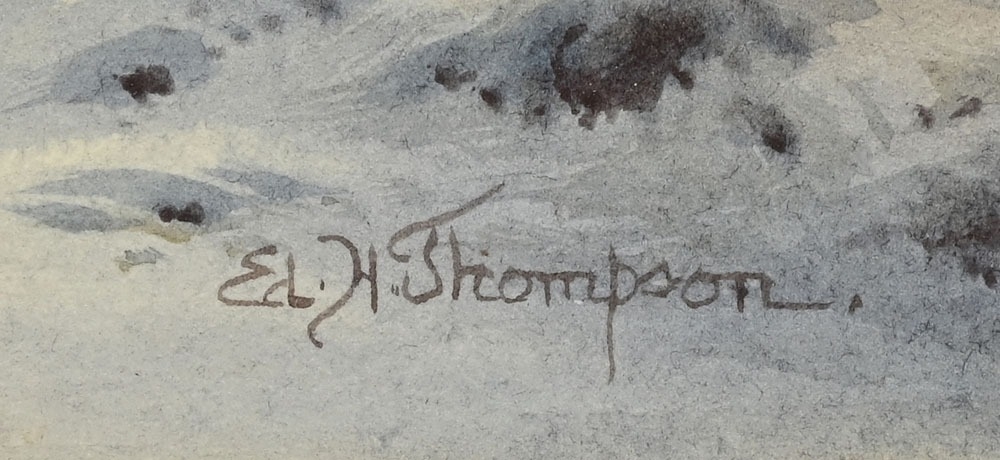 Ed. H. Thompson.